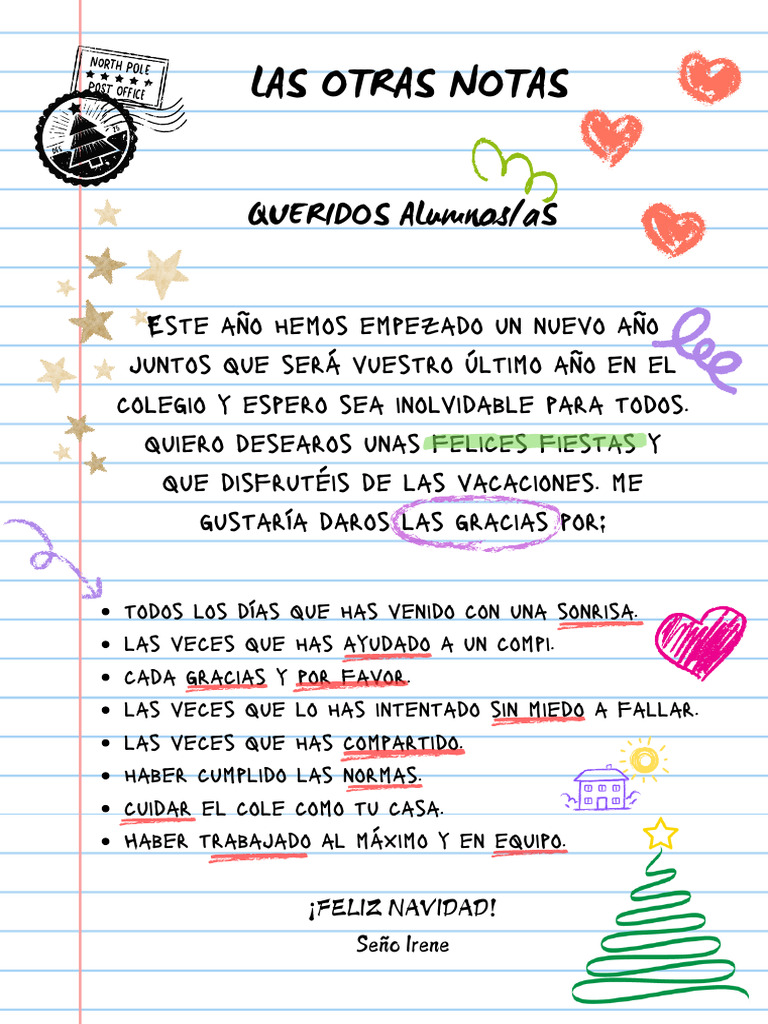 NORTH POLE
POST OFFICE
DEC 25
LAS OTRAS NOTAS
QUERIDOS Alumnos/as
ESTE AÑO HEMOS EMPEZADO UN NUEVO AÑO
JUNTOS QUE SERÁ VUESTRO ÚLTIMO AÑO EN EL
COLEGIO Y ESPERO SEA INOLVIDABLE PARA TODOS.
QUIERO DESEAROS UNAS FELICES FIESTAS Y
QUE DISFRUTÉIS DE LAS VACACIONES. ME
GUSTARÍA DAROS LAS GRACIAS POR:
• TODOS LOS DÍAS QUE HAS VENIDO CON UNA SONRISA.
• LAS VECES QUE HAS AYUDADO A UN COMPI.
• CADA GRACIAS Y POR FAVOR.
• LAS VECES QUE LO HAS INTENTADO SIN MIEDO A FALLAR.
• LAS VECES QUE HAS COMPARTIDO.
• HABER CUMPLIDO LAS NORMAS.
• CUIDAR EL COLE COMO TU CASA.
• HABER TRABAJADO AL MÁXIMO Y EN EQUIPO.
¡FELIZ NAVIDAD!
Seño Irene